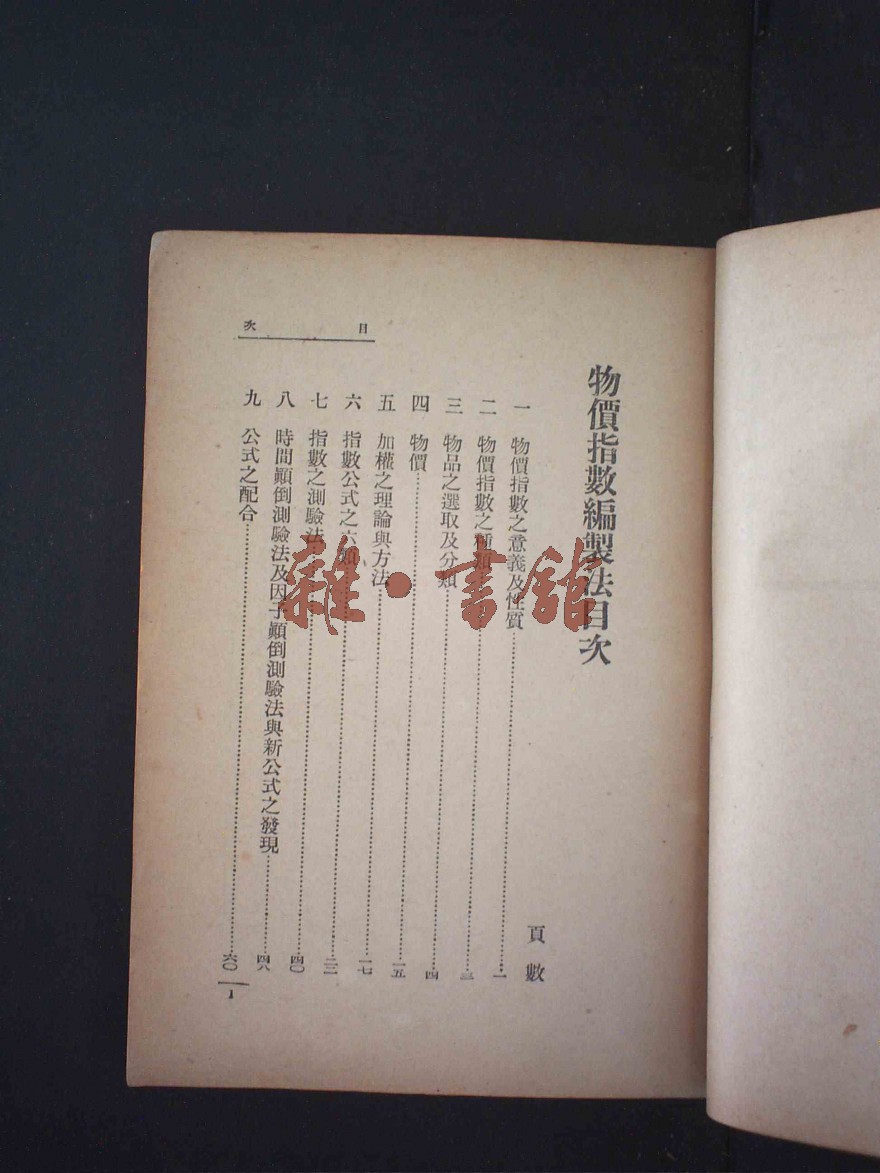 物價指數編製法目次
頁數
一 物價指數之意義及性質 一
二 物價指數之種類 三
三 物品之選取及分類 四
四 物價 一五
五 加權之理論與方法 一七
六 指數公式之六類
七 指數之測驗法 四〇
八 時間顚倒測驗法及因子顚倒測驗法與新公式之發現 四八
九 公式之配合 六〇
目次
1
雜·書館